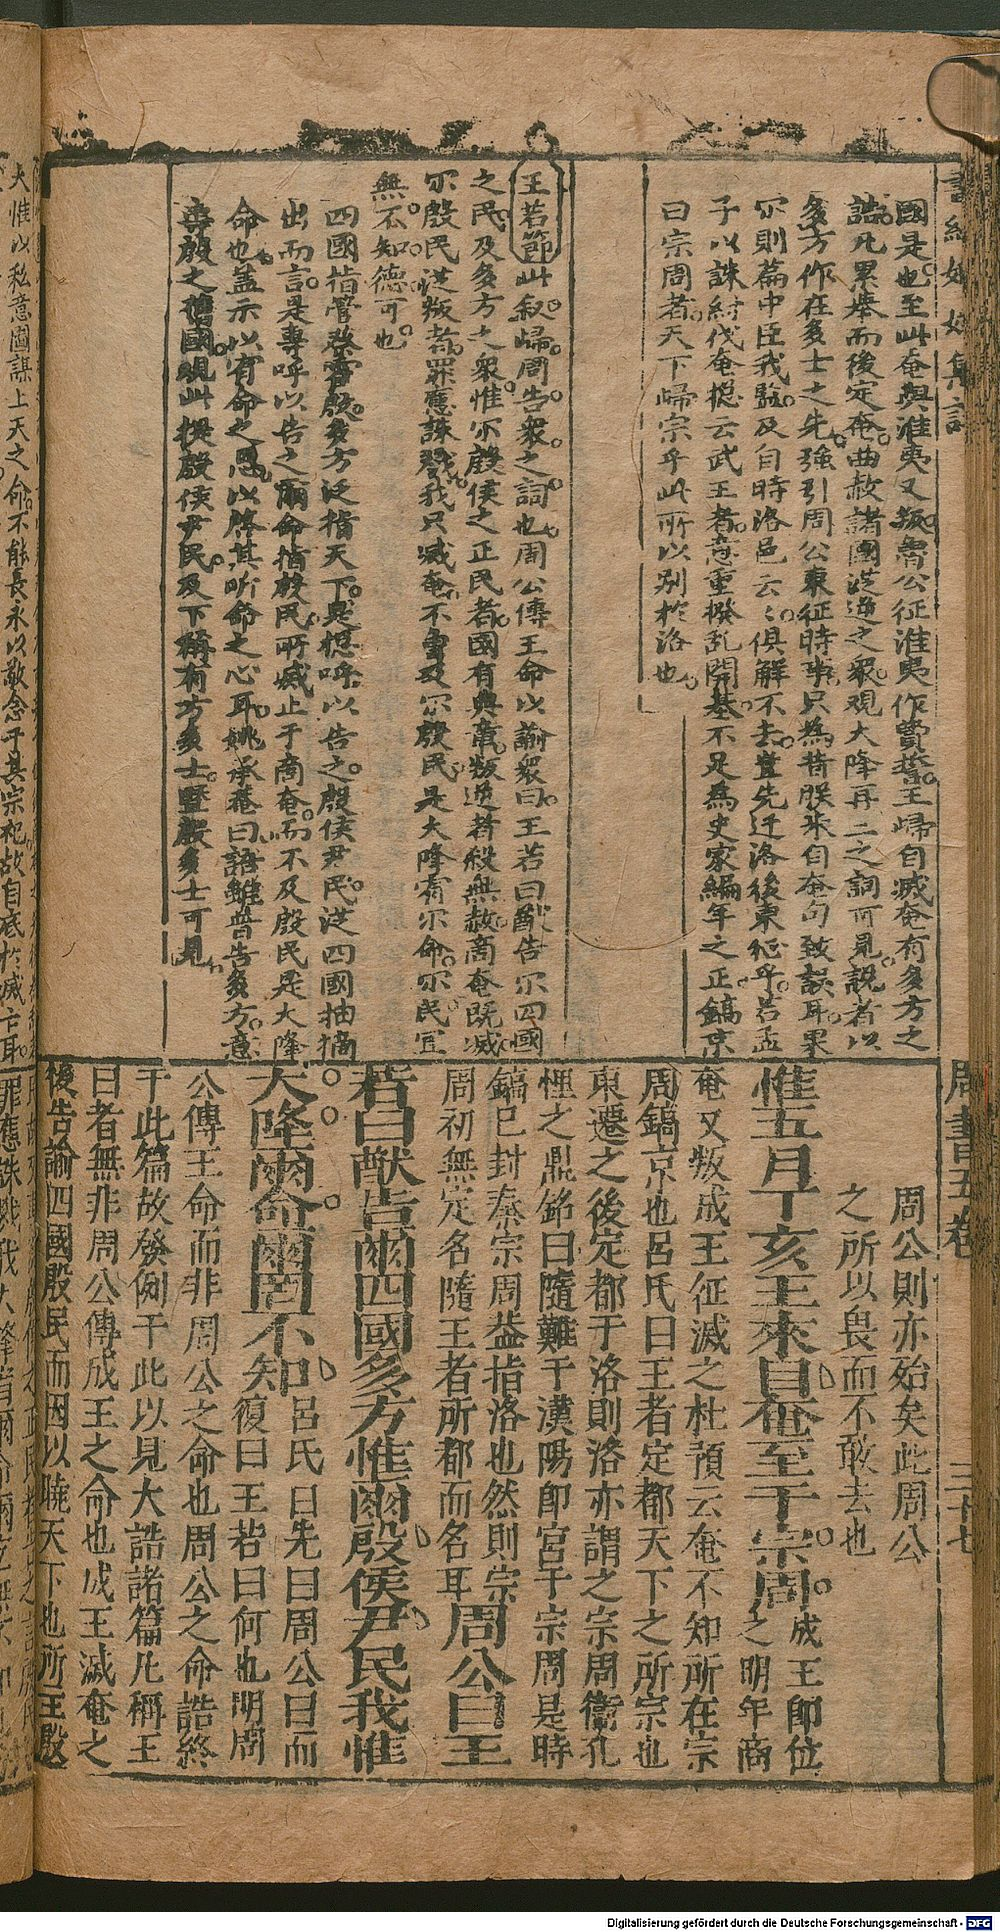 國是也至此奄與淮夷又叛魯公征淮夷作費誓王歸自滅奄有多方之
誥凡累奉而後定奄曲赦諸國從逆之衆觀大降再三之詞可見說者以
多方作在多士之先強引周公東征時事只為昔朕來自奄句致誤耳果
尔則篇中臣我監及自時洛邑云云俱解不去豈先迁洛後東征乎若孟
子以誅紂伐奄摠云武王者意重撥乱開基不足為史家編年之正鎬京
曰宗周者天下歸宗乎此所以別於洛也
王若節此叙歸周告衆之詞也周公傳王命以諭衆曰王若曰猷告尔四國
之民及多方之衆惟尔殷侯之正民者國有典憲叛逆者殺無赦商奄既滅
尔殷民從叛者罪應誅戮我只滅奄不曾及尔殷民是大降宥尔命尔民宜
無不知德可也
四國指管蔡霍殷多方泛指天下異摠呼以告之殷侯尹民從四國抽摘
出而言是專呼以告之爾命指殷民所滅止于商奄而不及殷民是大降
命也蓋示以宥命之恩以啓其听命之心耳姚承菴曰語雖普告多方意
專殷之舊國現此提殷侯尹民及下稱有方多士曁殷多士可見
周書五卷
周公則亦殆矣此周公
之所以畏而不敢去也
惟五月丁亥王來自奄至于宗周成王即位之明年商
奄又叛成王征滅之杜預云奄不知所在宗
周鎬京也呂氏曰王者定都天下之所宗也
東遷之後定都于洛則洛亦謂之宗周衛孔
悝之鼎銘曰隨難于漢陽即宮于宗周是時
鎬已封秦宗周蓋指洛也然則宗
周初無定名隨王者所都而名耳周公曰王
若曰猷告爾四國多方惟爾殷侯尹民我惟
大降爾命爾罔不知呂氏曰先曰周公曰而復曰王若曰何也明周
公傳王命而非周公之命也周公之命誥終
于此篇故發例于此以見大誥諸篇凡稱王
曰者無非周公傳成王之命也成王滅奄之
後告諭四國殷民而因以曉天下也所主殷
大惟以私意圖謀上天之命不能長永以敬念于其宗祀故自底於滅亡耳
Digitalisierung gefördert durch die Deutsche Forschungsgemeinschaft - DFG